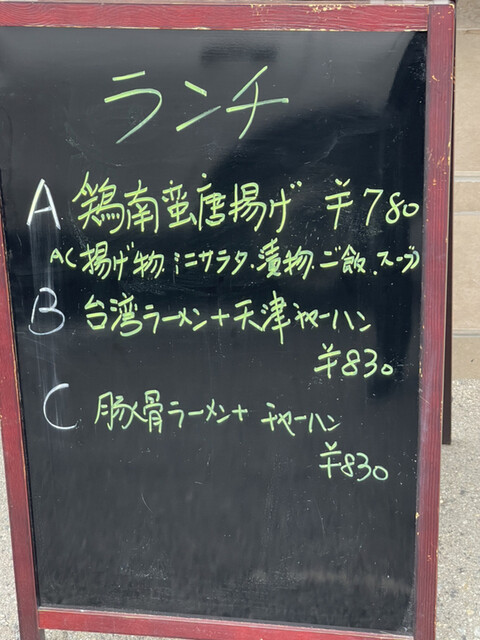 ランチ
A 鶏南蛮唐揚げ ¥780
AC 揚げ物.ミニサラタ.漬物.ご飯.スープ)
B 台湾ラーメン+天津チャーハン
¥830
C 豚骨ラーメン+ チャーハン
¥830